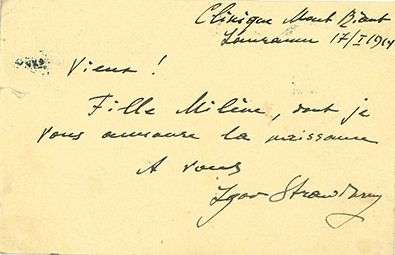 Clinique Mont Riant
Lausanne 17/I 1914
Vieux !
Fille Milène, dont je
vous annonce la naissance
A vous
Igor Strawinsky